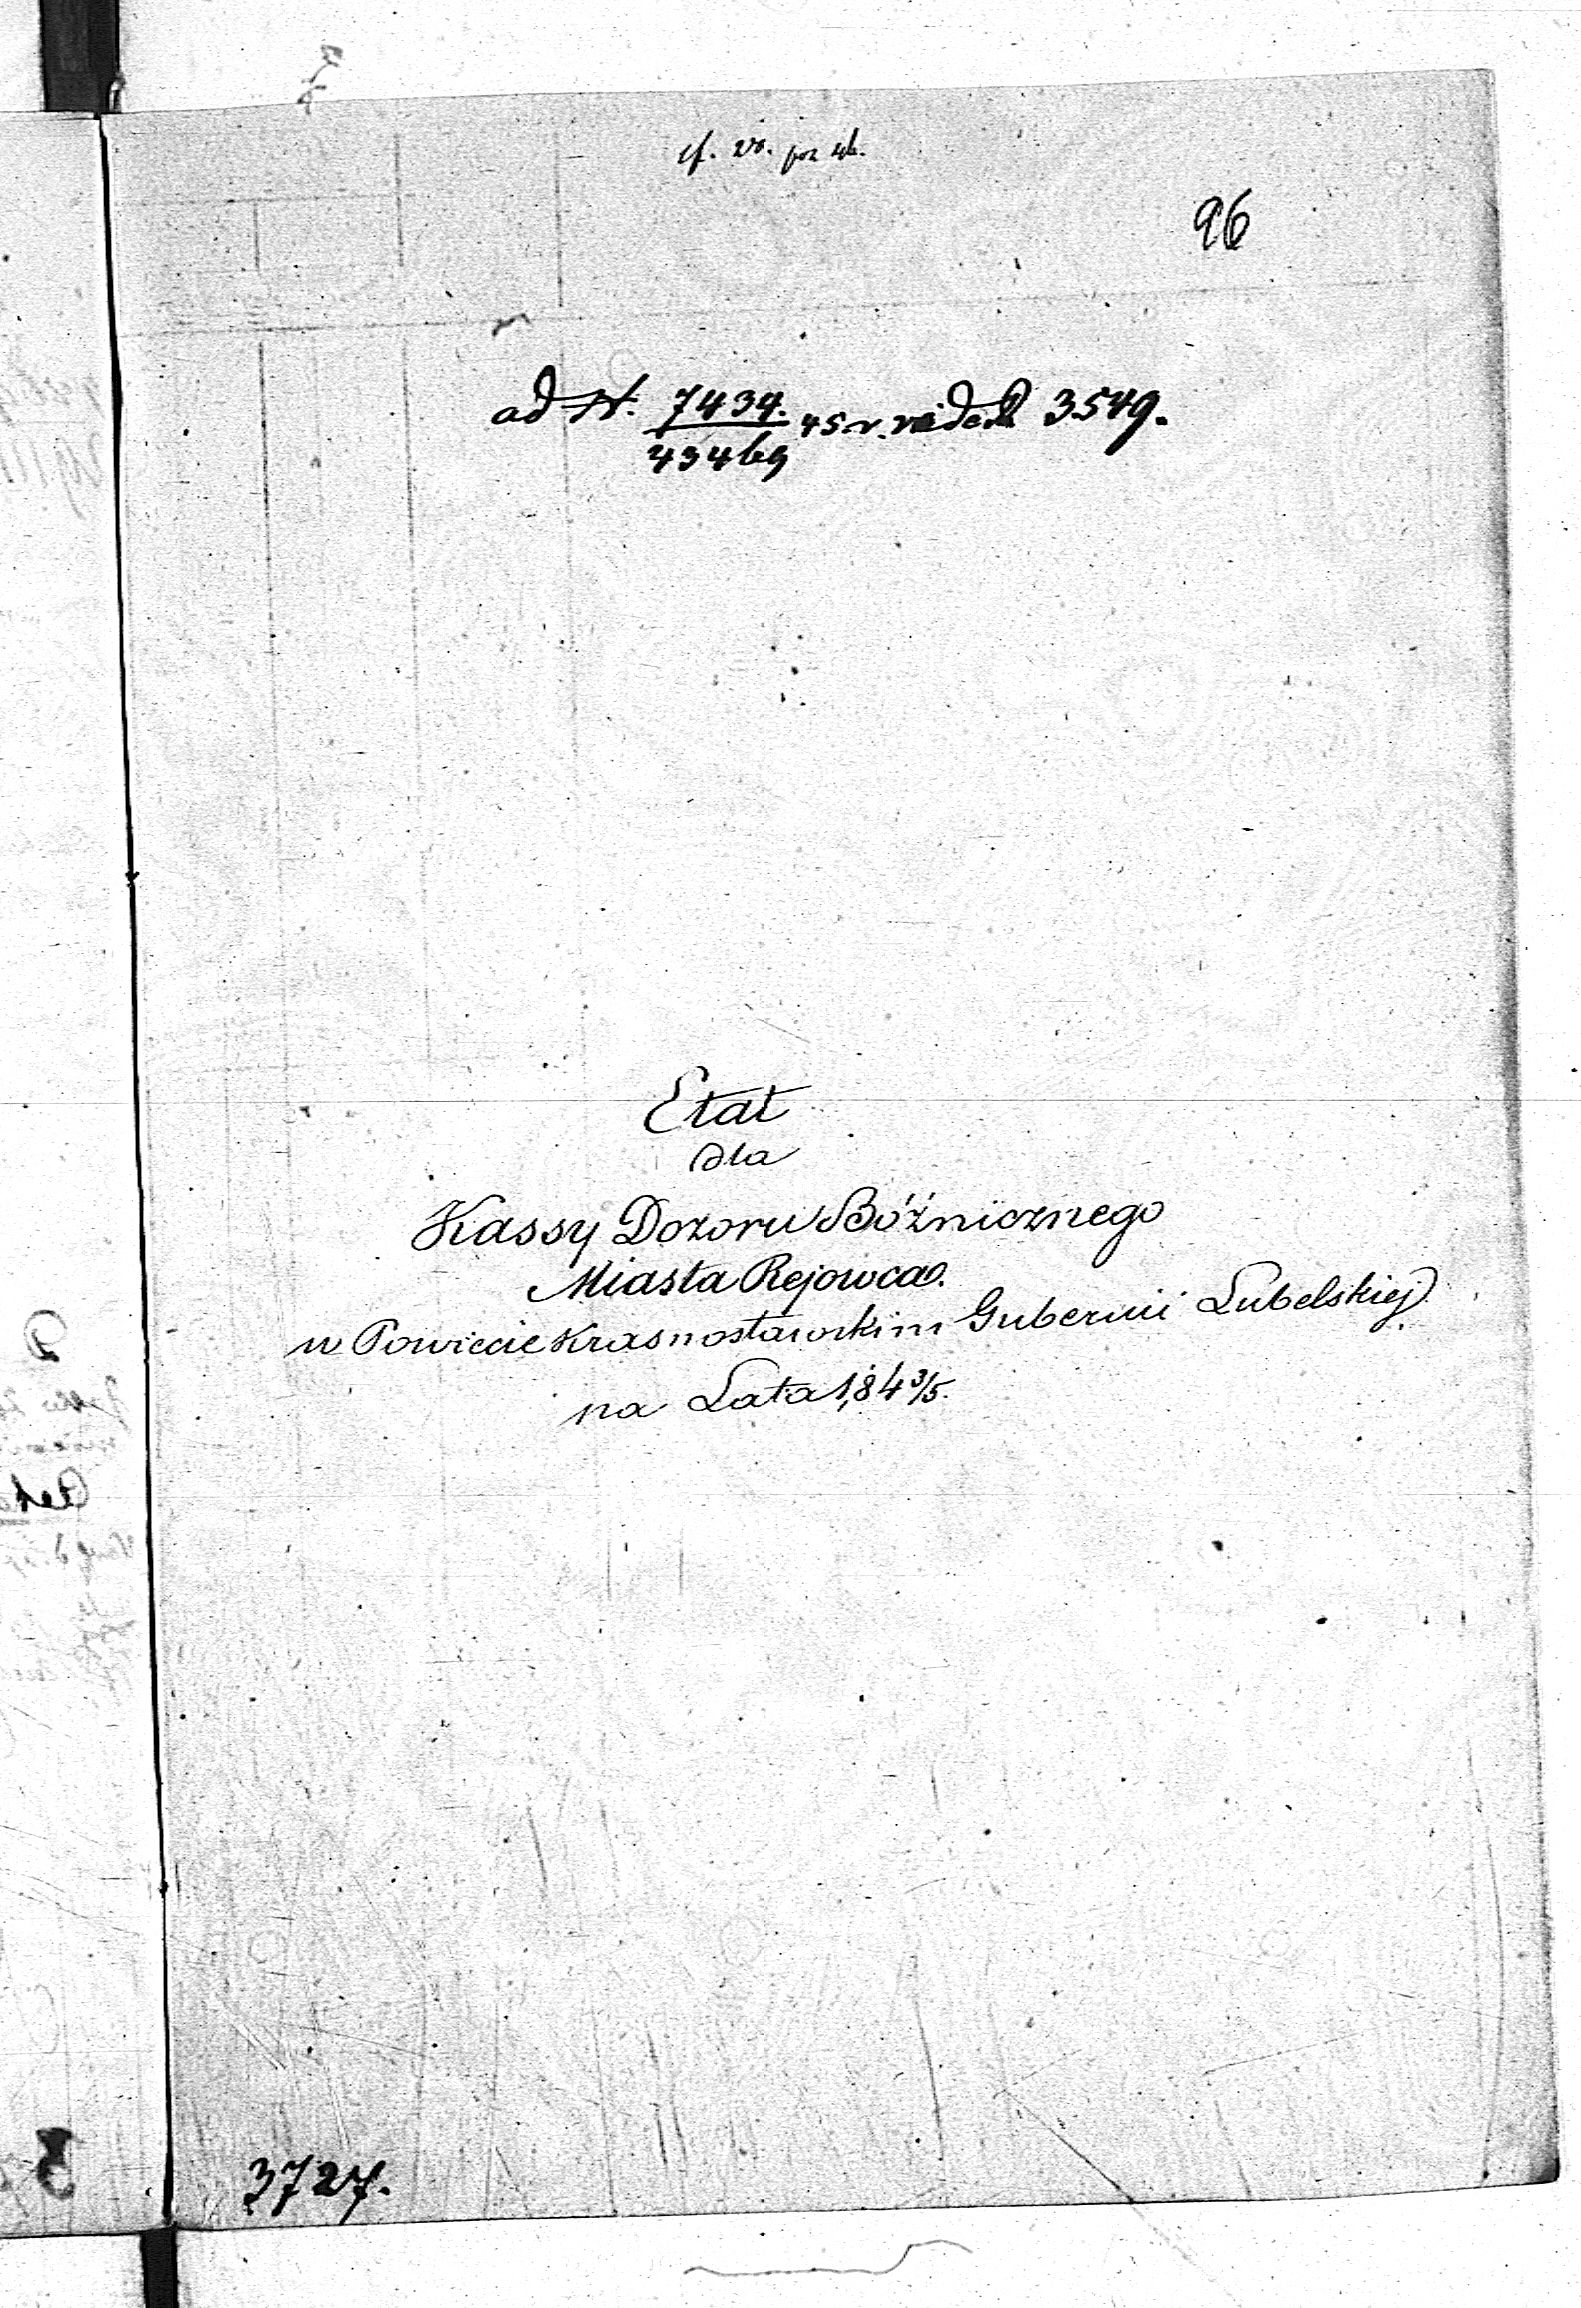 96
ad N. 7434. 45 r. videat 3549.
43469
Etat
dla
Kassy Dozoru Bóżnicznego
Miasta Rejowca.
w Powiecie Krasnostawskim Gubernii Lubelskiej.
na Lata 1843/5.
3727.